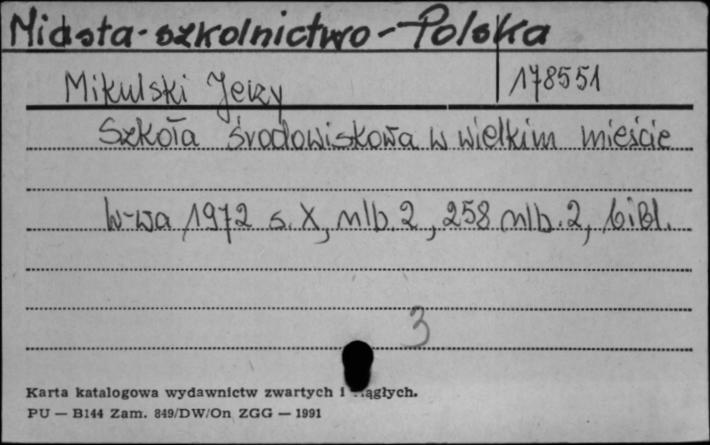 Miasta - szkolnictwo - Polska
Mikulski Jerzy 178551
Szkoła środowiskowa w wielkim mieście
W-wa 1972 s. X, nlb. 2, 258 nlb. 2, bibl.
3
Karta katalogowa wydawnictw zwartych i
PU — B144 Zam. 849/DW/On ZGG — 1991